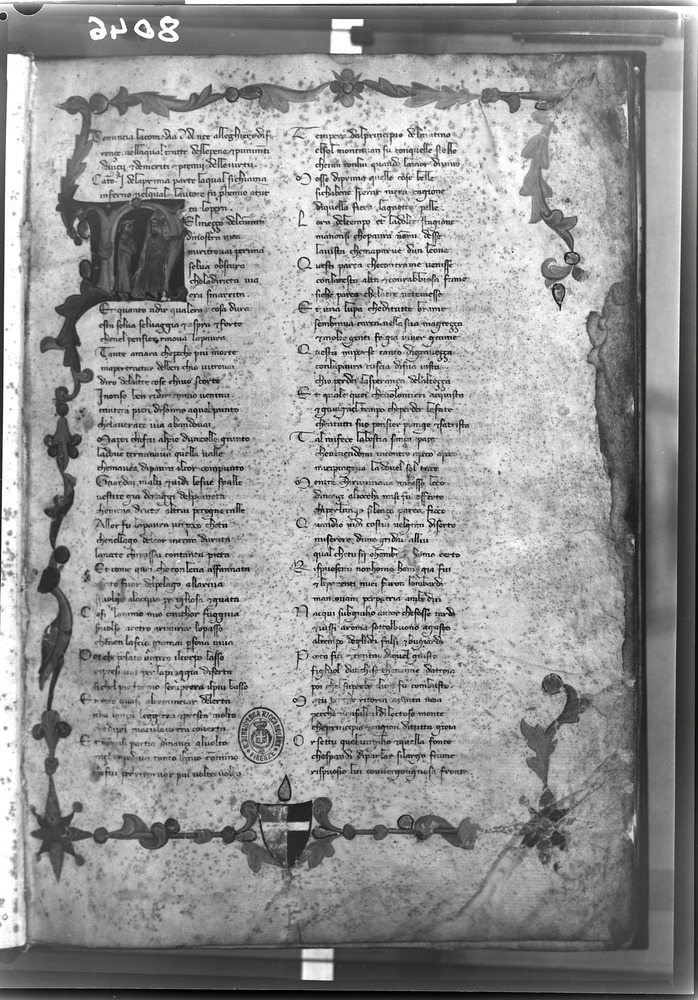 8046
Comincia lacomedia di dante alleghieri dif
renze nellaquale tratta dellepene e punimenti
deuicij e demeriti e premij delle uirtu
Canto .I. della prima parte laquale sichiama
inferno nelqual lautore fa prohemio atut
ta lopera.
Nelmezzo delcamin
dinostra uita
miritrouai peruna
selua obscura
cheladiricta uia
era smarrita.
Et quanto adir qualera e cosa dura
esta selua seluaggia e aspra e forte
chenel pensier rinoua lapaura
Tante amara chepocho piu morte
mapertractar delben chio uitrouai
diro dellaltre cose chiuo scorte
Inonso ben ridir comio uentrai
tantera pien disonno aquel punto
chelauerace uia abandonai
Mapoi chefui alpie duncolle giunto
ladoue terminaua quella ualle
chemauea dipaura ilcor compunto
Guardai inalto e uidi lesue spalle
uestite gia deraggi delpianeta
chemena dricto altrui perogne calle
Allor fu lapaura unpoco cheta
chenellago delcor mera durata
lanotte chipassai contanta pieta
Et come quei checonlena affannata
uscito fuor delpelago allariua
siuolge alacqua perigliosa e guata
Cosi lanimo mio anchor fuggiua
siuolse aretro arimirar lopasso
chenon lascio giamai persona uiua
Poi che posato unpoco ilcorpo lasso
ripresi uia perlapiaggia diserta
sichel pie fermo sempre era ilpiu basso
Et ecco quasi alcominciar dellerta
una lonza leggiera e presta molto
chedipel maculato era couerta
Et nonmi partia dinanzi aluolto
anzi impediua tanto ilmio camino
chifui perritornar piu uolte uolto
Tempera dalprincipio delmatino
elsol montauan su conquelle stelle
cheran conlui quando lamor diuino
Mosse diprima quelle cose belle
sichabene sperar mera cagione
diquella fiera lagaetta pelle
Lora deltempo et ladolce stagione
manonsi chepaura non mi desse
lauista chemaparue dun leone
Questi parea checontrame uenisse
conlatesta alta e conrabbiosa fame
siche parea chelaere netemesse
Et una lupa cheditutte brame
sembiaua carca nella sua magrezza
e molte genti fe gia uiuer grame
Questa miporse tanto digrauezza
conlapaura cuscia disua uista
chio perdei lasperanza dellaltezza
Et quale quei cheuolontieri acquista
e giungnel tempo cheperder loface
chentutti suo pensier piange e sattrista
Tal mifece labestia senza pace
cheuenendomi incontro apoco apoco
miripingeua ladouel sol tace
Mentre chirouinaua inbasso loco
dinanzi aliocchi misi fu offerto
chiperlungo silenço parea fioco
Quando uidi costui nelgran diserto
miserere dime gridai allui
qual chetusii ohombra od omo certo
Risposemi nonhomo homo gia fui
e liparenti miei furon lombardi
mantouani perpatria ambedui
Nacqui subgiulio ancor chefosse tardi
e uissi aroma sottolbuono agusto
altempo deglidei falsi e bugiardi
Poeta fui e cantai diquel giusto
figliuol danchise cheuenne datroia
poi chel superbo ilion fu combusto
Ma tu perche ritorni atanta noia
perche nonsali ildilectoso monte
cheprincipio e cagion ditutta gioia
Or setu quel uirgilio e quella fonte
chespandi diparlar silargo fiume
rispuosio lui conuergongnosa fronte.